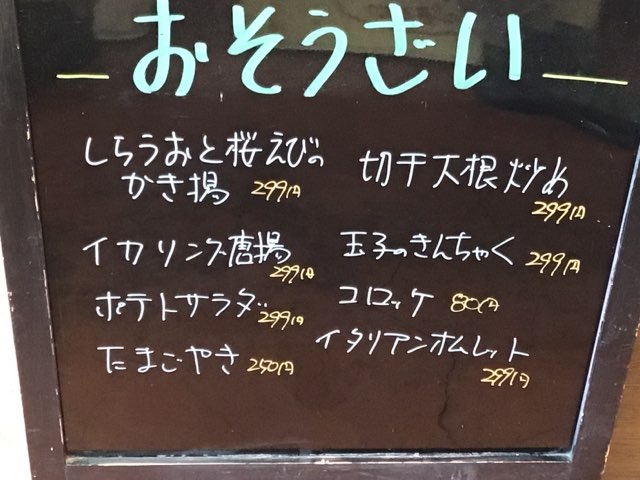 おそうざい
しらうおと桜えびの
かき揚 299円
イカリング唐揚
299円
ポテトサラダ 299円
たまごやき 250円
切干大根炒め
299円
玉子のきんちゃく 299円
コロッケ 80円
イタリアンオムレット
299円